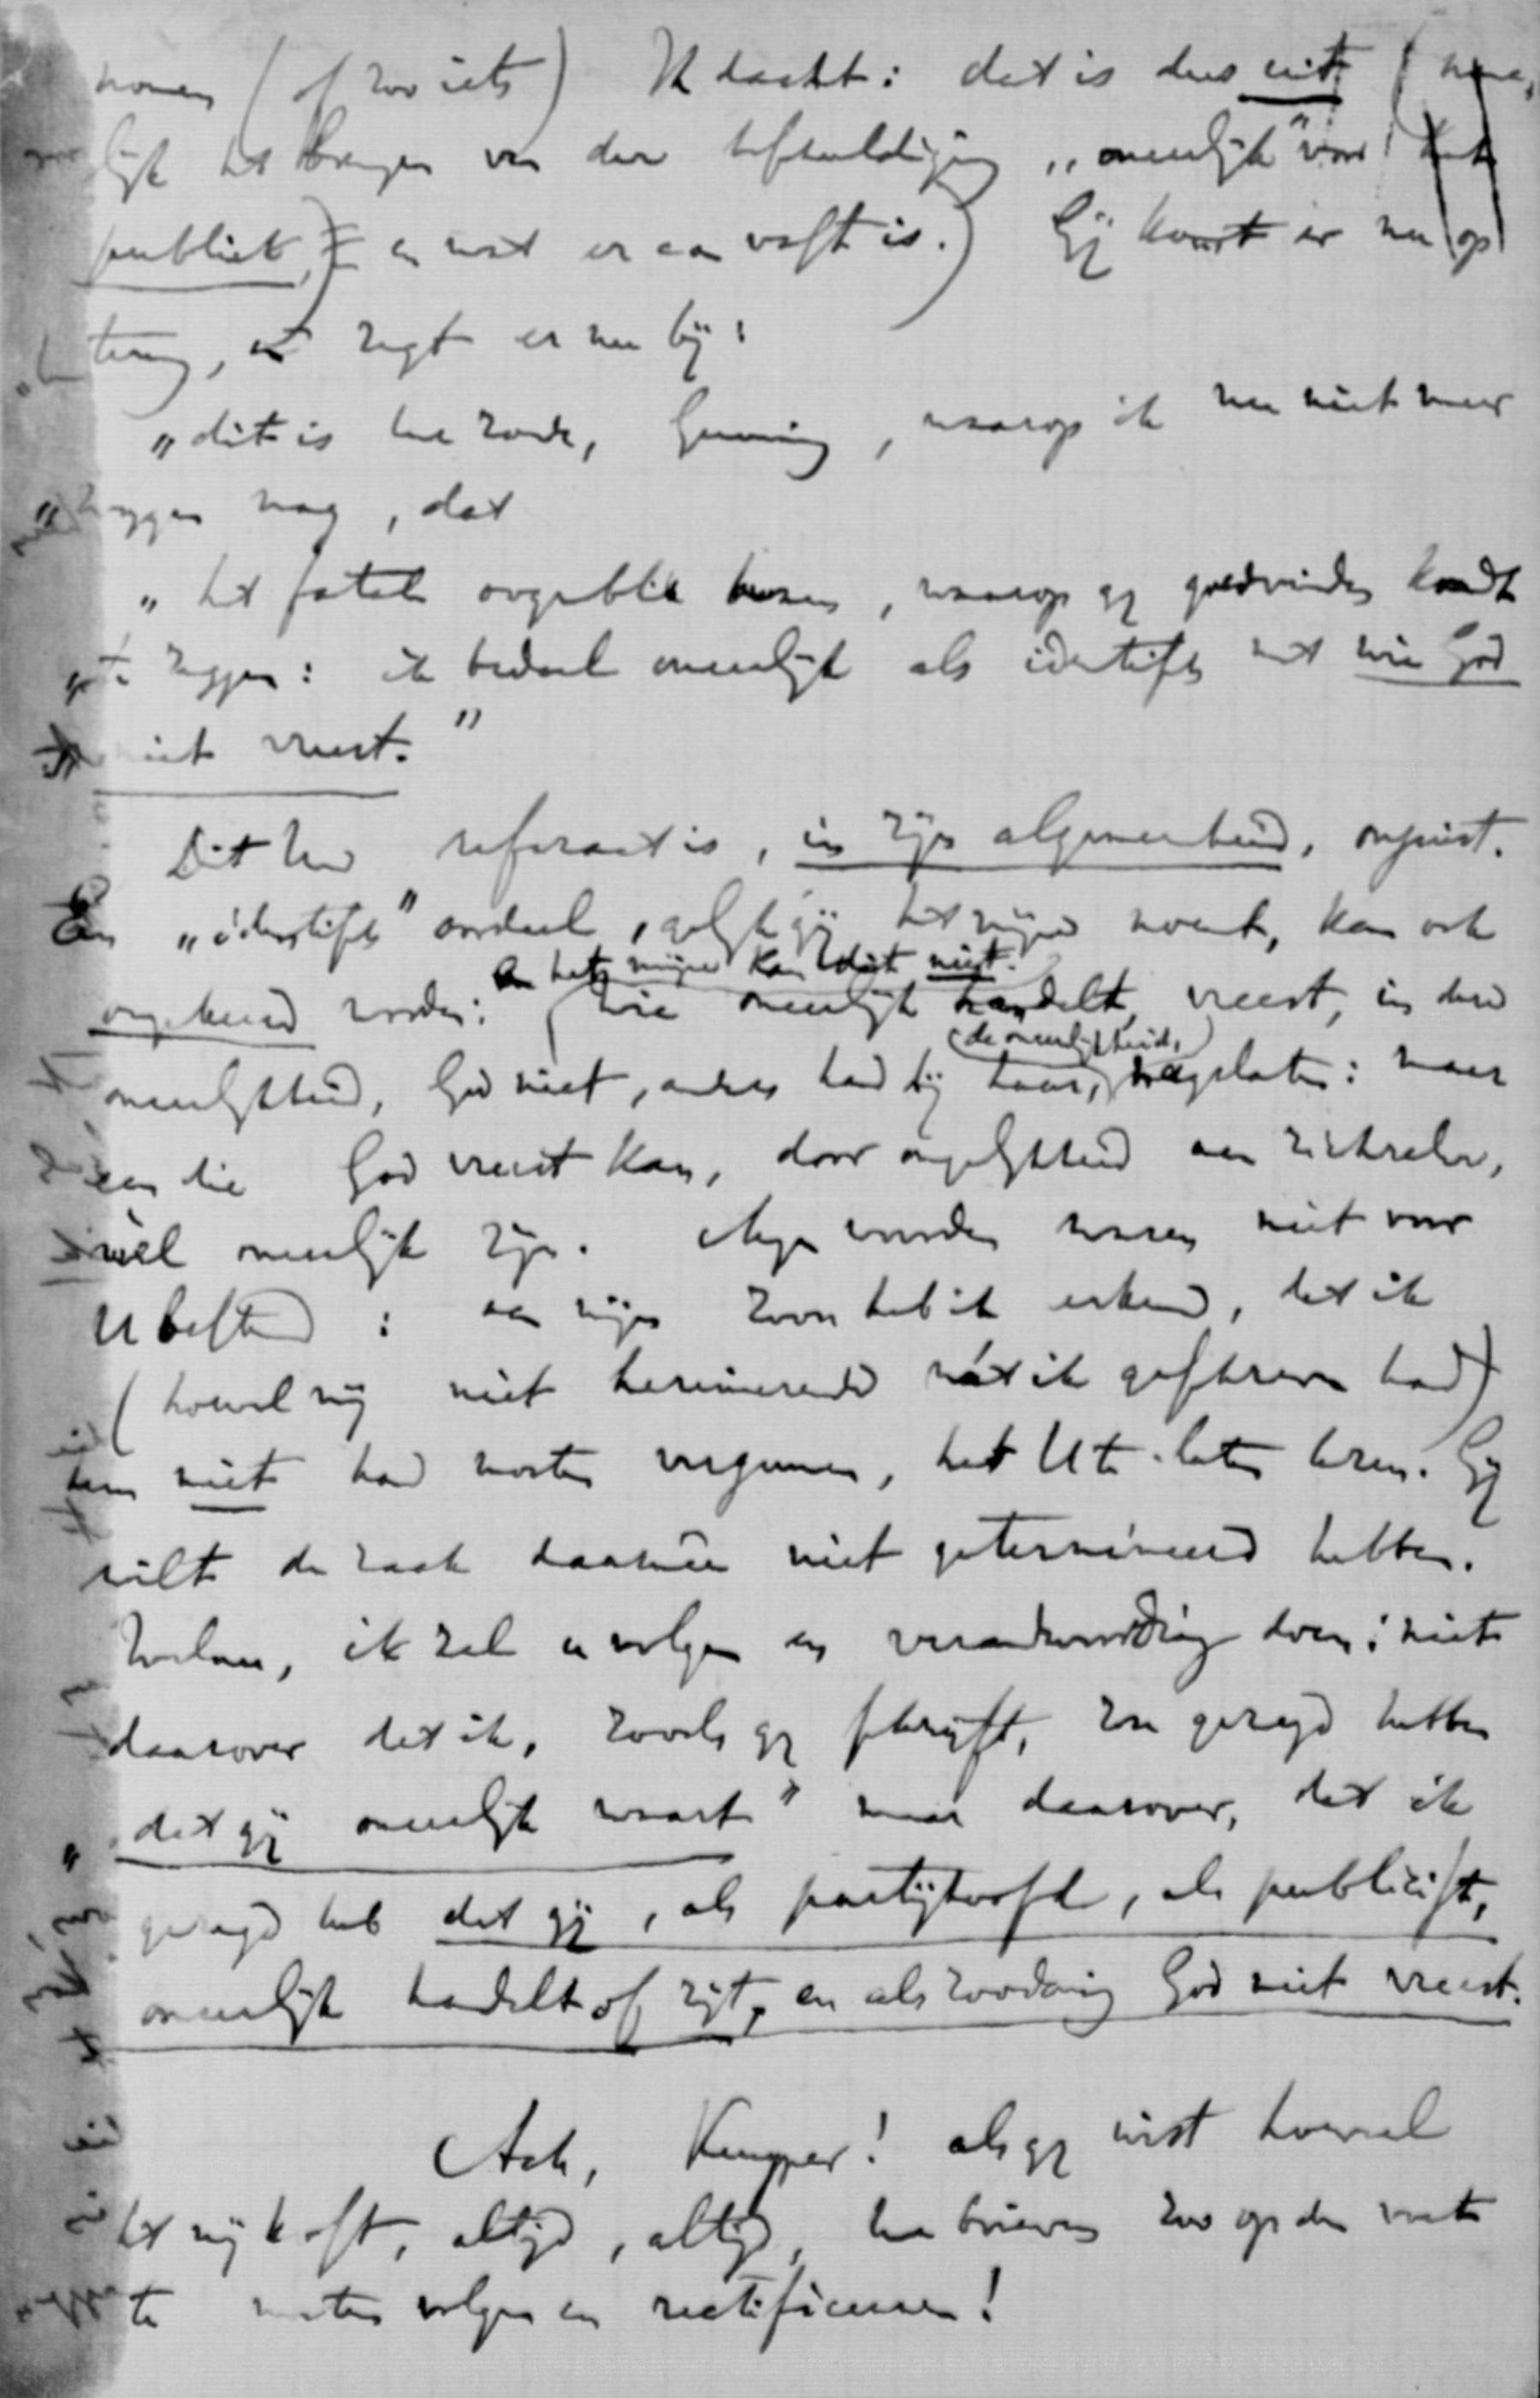 nomen (of zoo iets) Ik dacht: dat is dus uit (name,
lijk het brengen van der beschuldiging „oneerlijk" voor het
publiek, en wat er aan vast is.) Gij komt er nu op
terug, en zegt er nu bij:
„dit is uw zonde, Gunning, waarop ik nu niet meer
zwijgen mag, dat
„het fatale oogenblik kwam, waarop gij goedvinden kondt
te zeggen: ik bedoel oneerlijk als identisch met wie God
niet vreest."
Dit uw referaat is, in zijn algemeenheid, onjuist.
Een „identisch" oordeel, gelijk gij het mijne noemt, kan ook
en het mijne kan dat niet.
omgekeerd worden: wie oneerlijk handelt, vreest, in deze
(de oneerlijkheid,)
oneerlijkheid, God niet, anders had hij haar, nagelaten: maar
een die God vreest kan, door ongelijkheid aan zichzelve,
wel oneerlijk zijn. Mijn woorden waren niet voor
U bestemd: aan mijn zoon heb ik erkend, dat ik
(hoewel mij niet herinnerende wát ik geschreven had)
hem niet had moeten vergunnen, het U te laten lezen. Gij
wilt de zaak daarmêe niet getermineerd hebben.
Welnu, ik zal u volgen en verantwoording doen: niet
daarover dat ik, zooals gij schrijft, zou gezegd hebben
„dat gij oneerlijk waart" maar daarover, dat ik
gezegd heb dat gij, als partijhoofd, als publicist,
oneerlijk handelt of zijt, en als zoodanig God niet vreest.
Ach, Kuyper! als gij wist hoeveel
het mij kost, altijd, altijd, uw brieven zoo op den voet
te moeten volgen en rectificeeren!